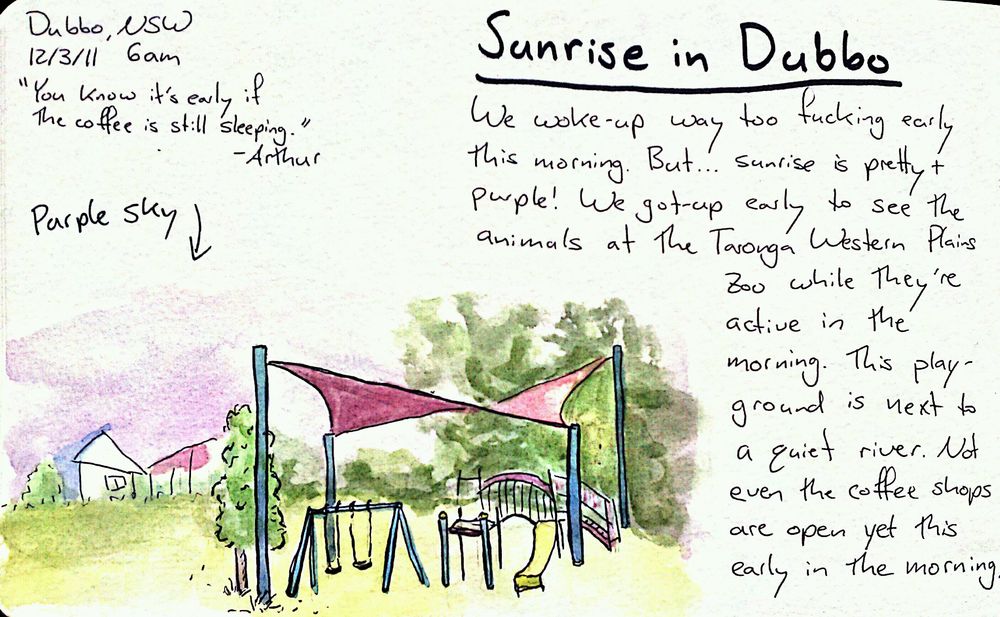 Dubbo, NSW
12/3/11 6am
"You know it's early if
the coffee is still sleeping."
-Arthur
Purple sky
Sunrise in Dubbo
We woke-up way too fucking early
this morning. But... sunrise is pretty +
purple! We got-up early to see the
animals at the Taronga Western Plains
Zoo while they're
active in the
morning. This play-
ground is next to
a quiet river. Not
even the coffee shops
are open yet this
early in the morning.